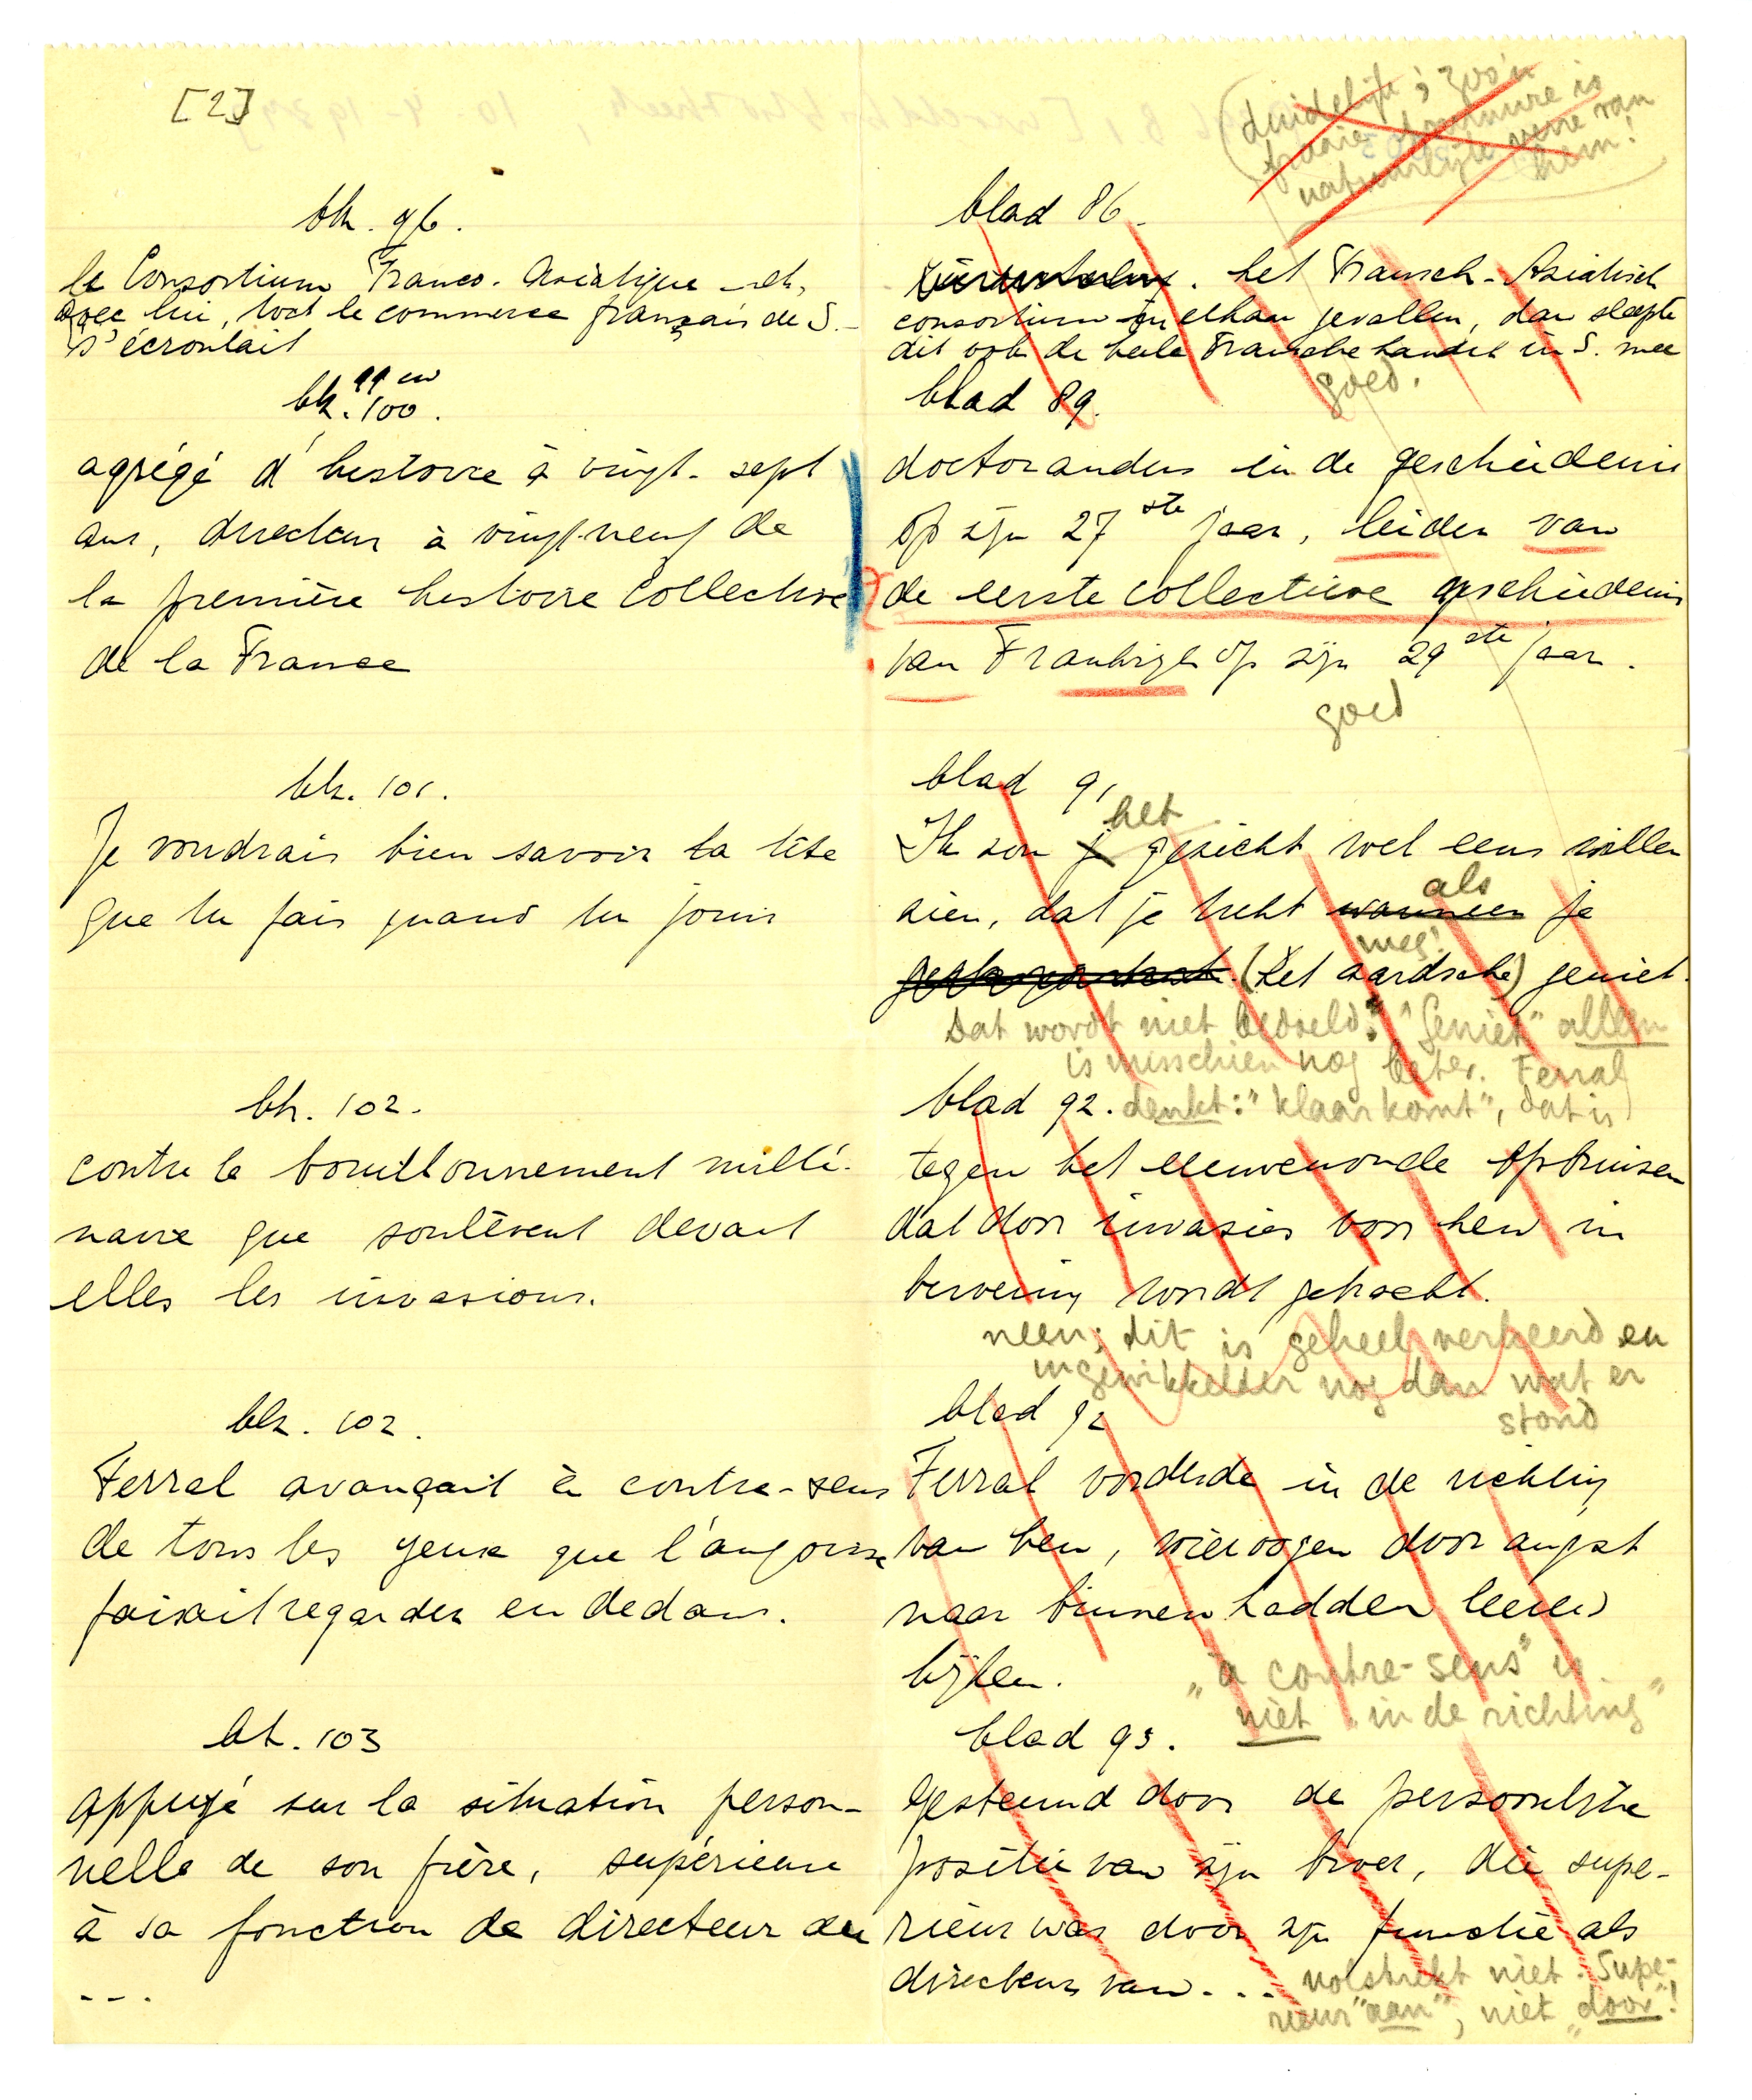 [2]
duidelijk; zoo'n
is
natuurlijk van
hem!
blz. 96.
le Consortium Franco-Asiatique et,
avec lui, tout le commerce français de S.
s'écroulait
blz. 99 en 100.
agrégé d'histoire à vingt-sept
ans, directeur à vingt-neuf de
la première histoire collective
de la France
blz. 101.
Je voudrais bien savoir la tête
que tu fais quand tu jouis
blz. 102.
contre le bouillonnement millé-
naire que soulèvent devant
elles les invasions.
blz. 102.
Ferral avançait à contre-sens
de tous les yeux que l'angoisse
faisait regarder en dedans.
blz. 103
appuyé sur la situation person-
nelle de son frère, supérieure
à sa fonction de directeur du
---.
blad 86.
. het Fransch-Aziatisch
consortium in elkaar gevallen, dan sleepte
dit ook de heele Fransche handel in S. mee
goed.
blad 89.
doctorandus in de geschiedenis
op zijn 27ste jaar, leider van
de eerste collectieve geschiedenis
van Frankrijk op zijn 29ste jaar.
goed
blad 91
het
Ik zou j gezicht wel eens willen
als
zien, dat je trekt wanneer je
weg!
(het aardsche) geniet.
Dat wordt niet bedoeld? "Geniet" alleen
is misschien nog beter. Ferral
blad 92. denkt: "klaarkomt", dat is
tegen het eeuwenoude opbruisen
dat door invasies voor hen in
beroering wordt gebracht.
neen; dit is geheel verkeerd en
ingewikkelder nog dan wat er
stond
blad 92
Ferral vorderde in de richting
van hen, wier oogen door angst
naar binnen hadden leeren
kijken. "à contre-sens" is
niet "in de richting"
blad 93.
Gesteund door de persoonlijke
positie van zijn broer, die supe-
rieur was door zijn functie als
directeur van...
volstrekt niet. Supe-
rieur "aan", niet "door"!